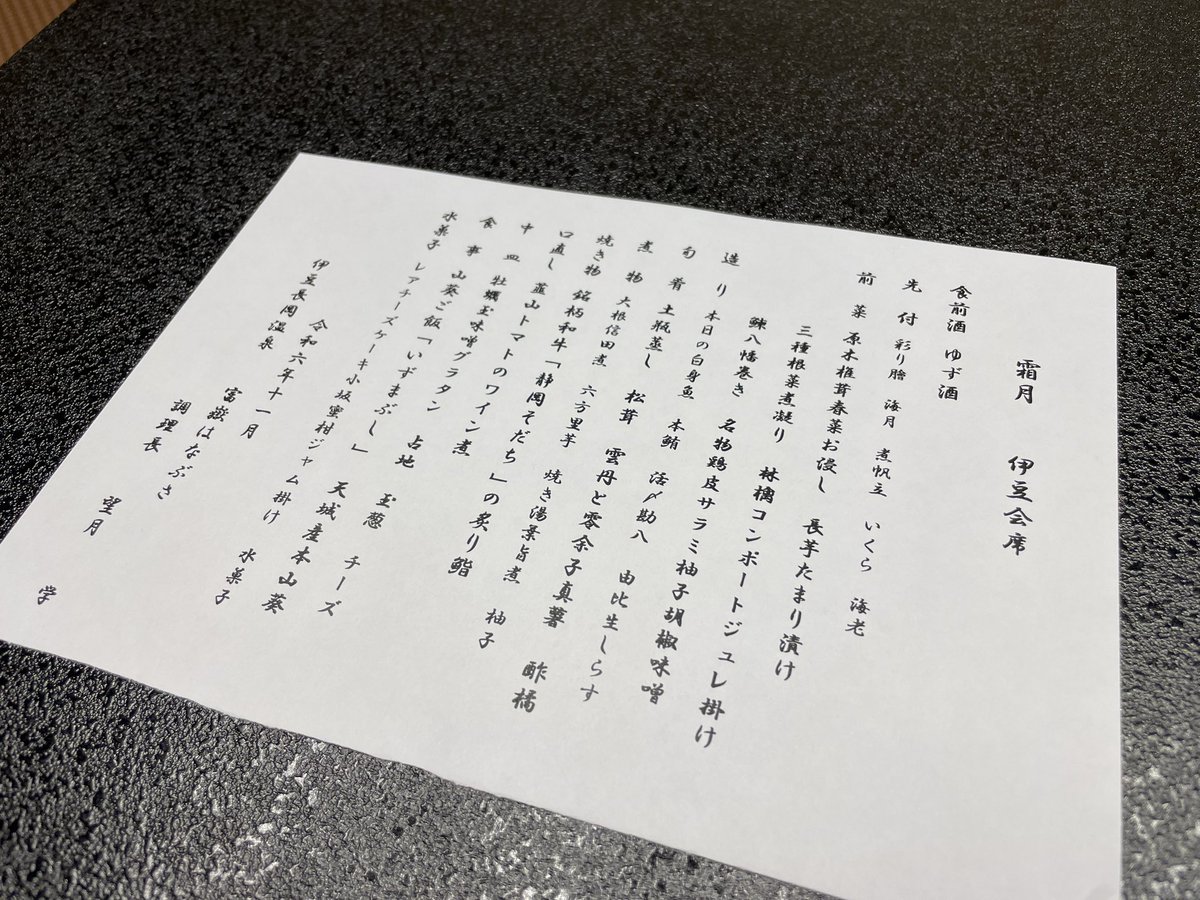 霜月 伊豆会席
食前酒 ゆず酒
先付 彩り膾 海月 煮帆立 いくら 海老
前菜 原木椎茸春菜お浸し 長芋たまり漬け
三種根菜煮凝り 林檎コンポートジュレ掛け
鰊八幡巻き 名物鶏皮サラミ柚子胡椒味噌
造り 本日の白身魚 本鮪 活〆勘八 由比生しらす
旬肴 土瓶蒸し 松茸 雲丹と零余子真薯 酢橘
煮物 大根信田煮 六方里芋 焼き湯葉旨煮 柚子
焼き物 銘柄和牛「静岡そだち」の炙り鮨
口直し 韮山トマトのワイン煮
中皿 牡蠣玉味噌グラタン 占地 玉葱 チーズ
食事 山葵ご飯「いずまぶし」 天城産本山葵
水菓子 レアチーズケーキ小坂蜜柑ジャム掛け 水菓子
令和六年十一月
伊豆長岡温泉 富嶽はなぶさ
調理長 望月 学